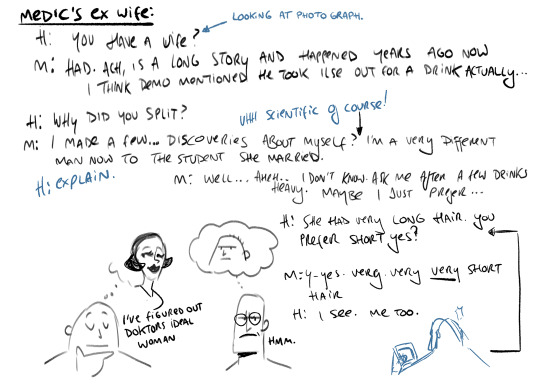 MEDIC's EX WIFE:
LOOKING AT PHOTOGRAPH.
H: YOU HAVE A WIFE?
M: HAD. ACH, IS A LONG STORY AND HAPPENED YEARS AGO NOW
I THINK DEMO MENTIONED HE TOOK ILSE OUT FOR A DRINK ACTUALLY...
H: WHY DID YOU SPLIT?
UHH SCIENTIFIC OF COURSE!
M: I MADE A FEW... DISCOVERIES ABOUT MYSELF? I'M A VERY DIFFERENT
MAN NOW TO THE STUDENT SHE MARRIED.
H: EXPLAIN.
M: WELL... AHEH.. I DON'T KNOW. ASK ME AFTER A FEW DRINKS
HEAVY. MAYBE I JUST PREFER...
H: SHE HAD VERY LONG HAIR. YOU
PREFER SHORT YES?
M: Y-YES. VERY. VERY VERY SHORT
HAIR
H: I SEE. ME TOO.
I'VE FIGURED OUT
DOKTORS IDEAL
WOMAN
HMM.